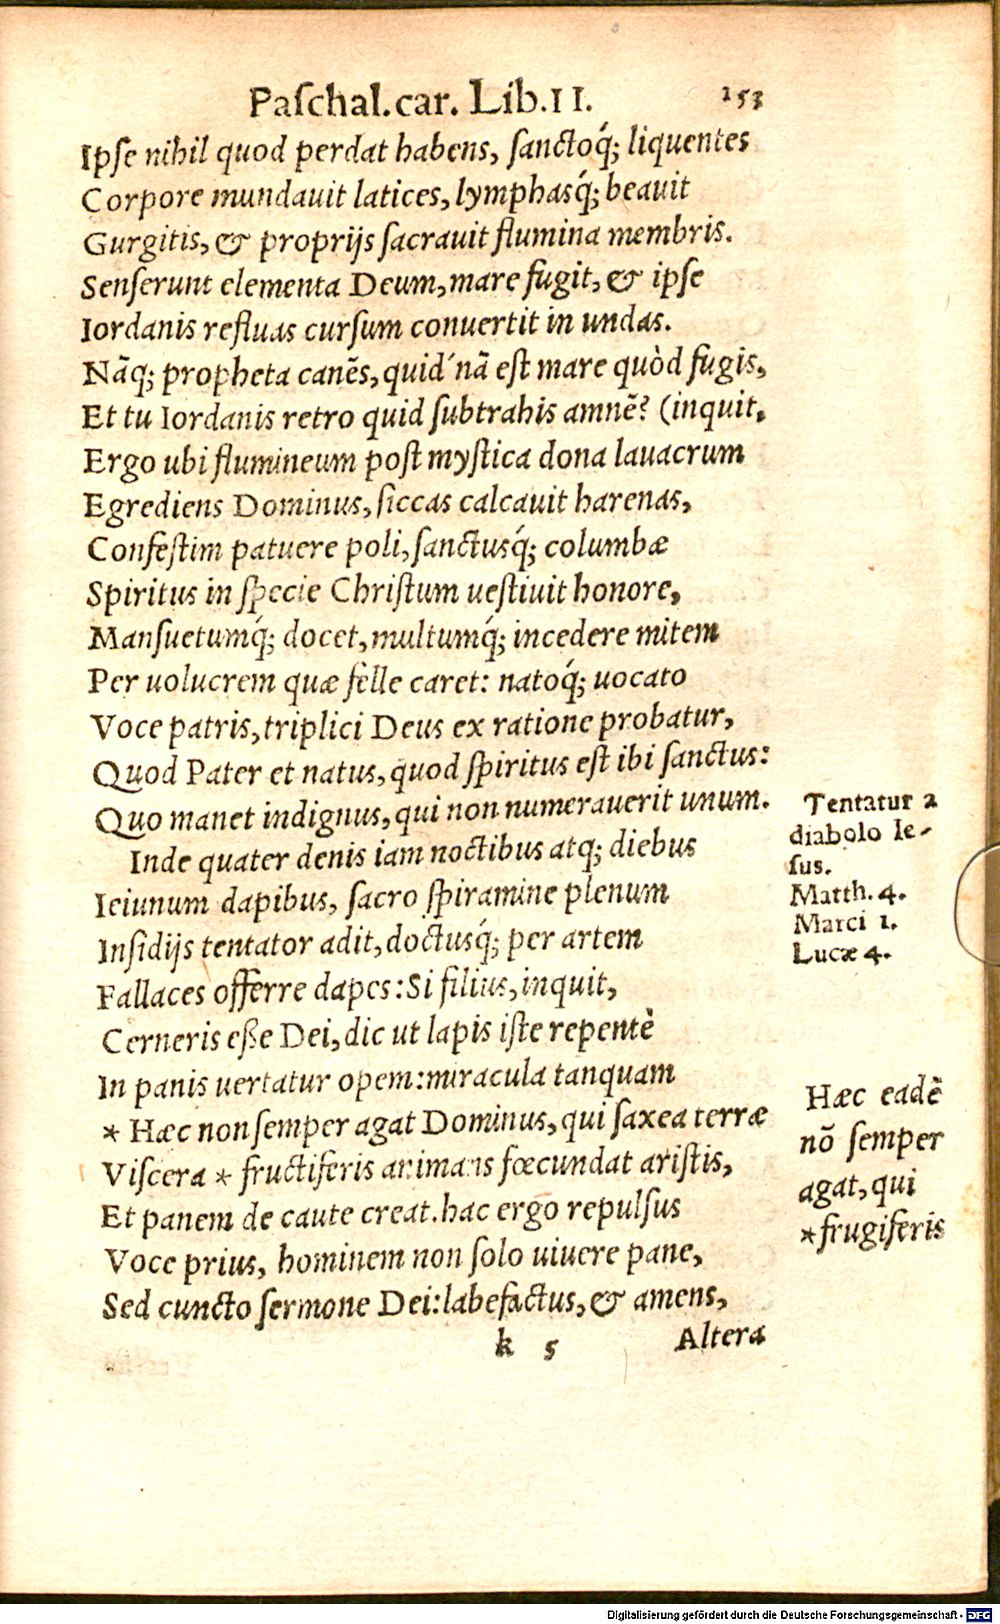 Paſchal.car. Lib.II. 153
Ipſe nihil quod perdat habens, ſanctoq́; liquentes
Corpore mundauit latices, lymphasq́; beauit
Gurgitis, & proprijs ſacrauit flumina membris.
Senſerunt elementa Deum, mare fugit, & ipſe
Iordanis refluas curſum conuertit in undas.
Nãq; propheta canẽs, quid'nã eſt mare quòd fugis,
Et tu Iordanis retro quid ſubtrahis amnẽ? (inquit,
Ergo ubi flumineum poſt myſtica dona lauacrum
Egrediens Dominus, ſiccas calcauit harenas,
Confeſtim patuere poli, ſanctusq́; columbæ
Spiritus in ſpecie Chriſtum ueſtiuit honore,
Manſuetumq́; docet, multumq́; incedere mitem
Per uolucrem quæ felle caret: natoq́; uocato
Voce patris, triplici Deus ex ratione probatur,
Quod Pater et natus, quod ſpiritus eſt ibi ſanctus:
Quo manet indignus, qui non numerauerit unum.
Inde quater denis iam noctibus atq; diebus
Ieiunum dapibus, ſacro ſpiramine plenum
Inſidijs tentator adit, doctusq́; per artem
Fallaces offerre dapes: Si filius, inquit,
Cerneris eße Dei, dic ut lapis iſte repentè
In panis uertatur opem: miracula tanquam
* Hæc non ſemper agat Dominus, qui ſaxea terræ
Viſcera * fructiferis animans fœcundat ariſtis,
Et panem de caute creat. hac ergo repulſus
Voce prius, hominem non ſolo uiuere pane,
Sed cuncto ſermone Dei: labefactus, & amens,
k 5 Altera
Tentatur a
diabolo Ie-
ſus.
Matth. 4.
Marci 1.
Lucæ 4.
Hæc eadẽ
nõ ſemper
agat, qui
*frugiferis
Digitalisierung gefördert durch die Deutsche Forschungsgemeinschaft - DFG